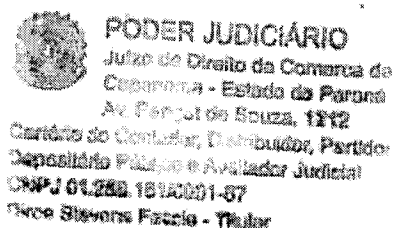 PODER JUDICIÁRIO
Juízo de Direito da Comarca de
Capanema - Estado do Paraná
Av. de Souza, 1212
Cartório do Contador, Distribuidor, Partidor
Depositário Público e Avaliador Judicial
CNPJ
Dirce Stevens Faccio - Titular